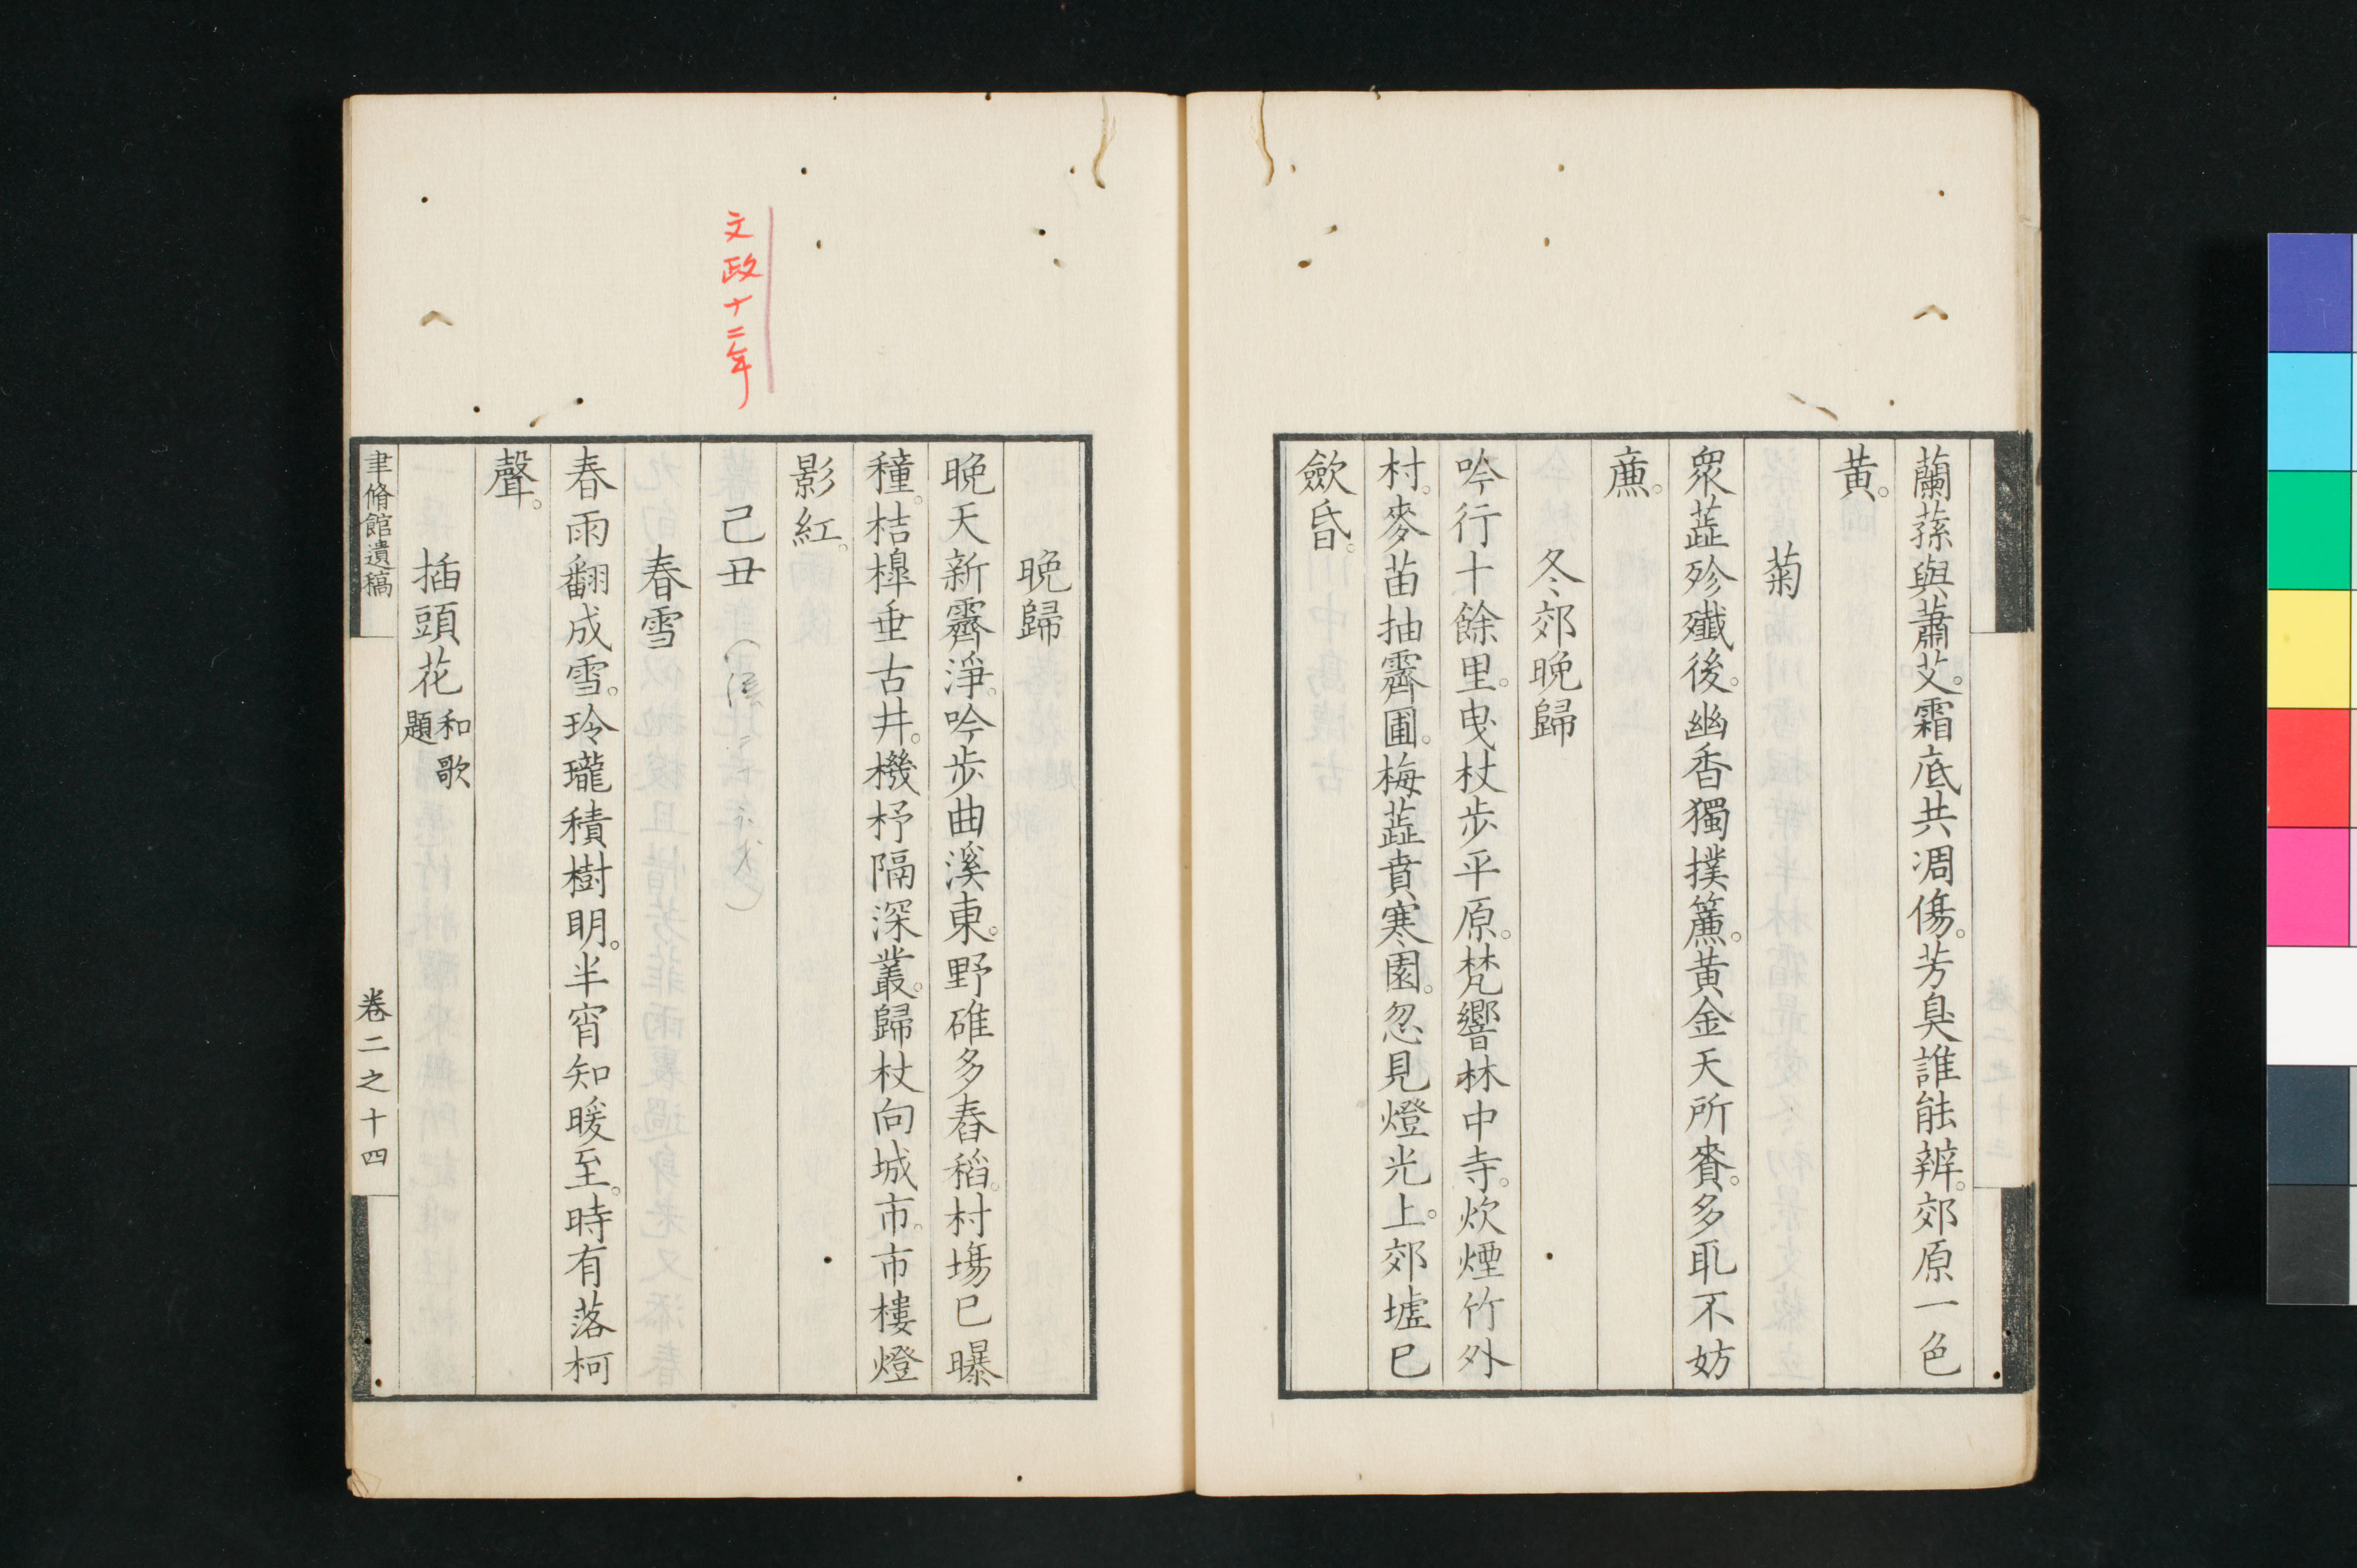 蘭蓀與蕭艾。霜底共凋傷。芳臭誰能辨。郊原一色
黃。
菊
衆蕋殄殲後。幽香獨撲簾。黃金天所賚。多取不妨
廉。
冬郊晚歸
吟行十餘里。曳杖步平原。梵響林中寺。炊煙竹外
村。麥苗抽霽圃。梅蕋賁寒園。忽見燈光上。郊墟已
歛昏。
晚歸
晚天新霽淨。吟步曲溪東。野碓多舂稻。村塲已曝
穜。桔槹垂古井。機杼隔深叢。歸杖向城市。市樓燈
影紅。
文政十二年
己丑
春雪
春雨翻成雪。玲瓏積樹明。半宵知暖至。時有落柯
聲。
插頭花 和歌題
聿脩館遺稿
卷二之十四